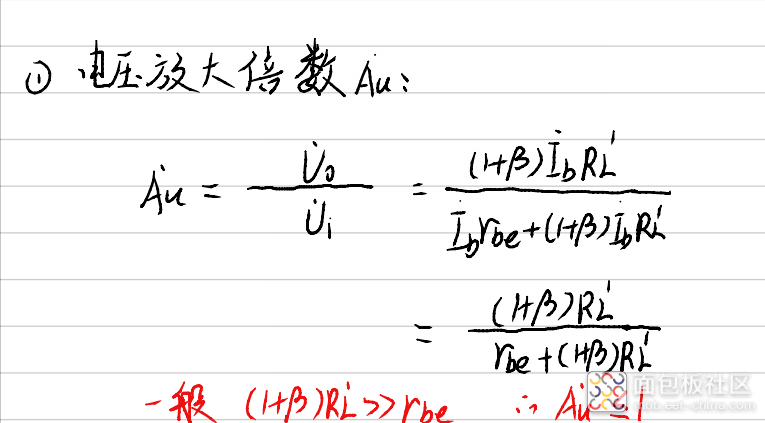 ① 电压放大倍数 Ȧu:
Ȧu = U̇o / U̇i = (1+β)İbRL' / (İbrbe+(1+β)İbRL')
= (1+β)RL' / (rbe+(1+β)RL')
一般 (1+β)RL'>>rbe ∴ Ȧu
面包板社区